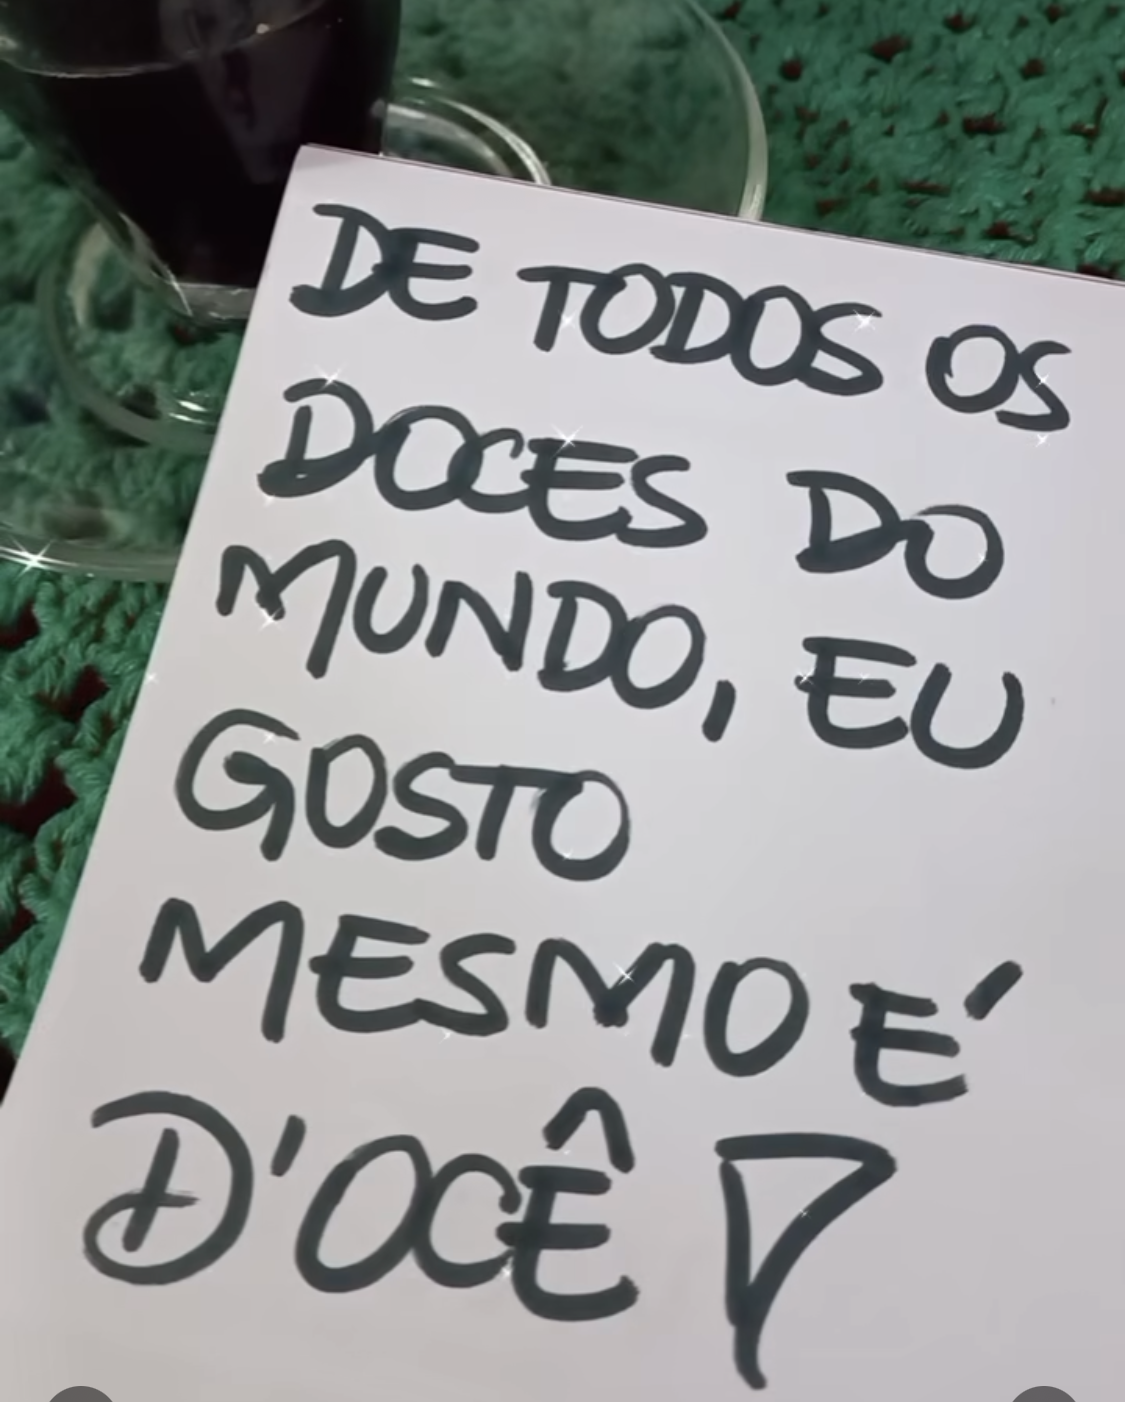 DE TODOS OS
DOCES DO
MUNDO, EU
GOSTO
MESMO É
D'OCÊ